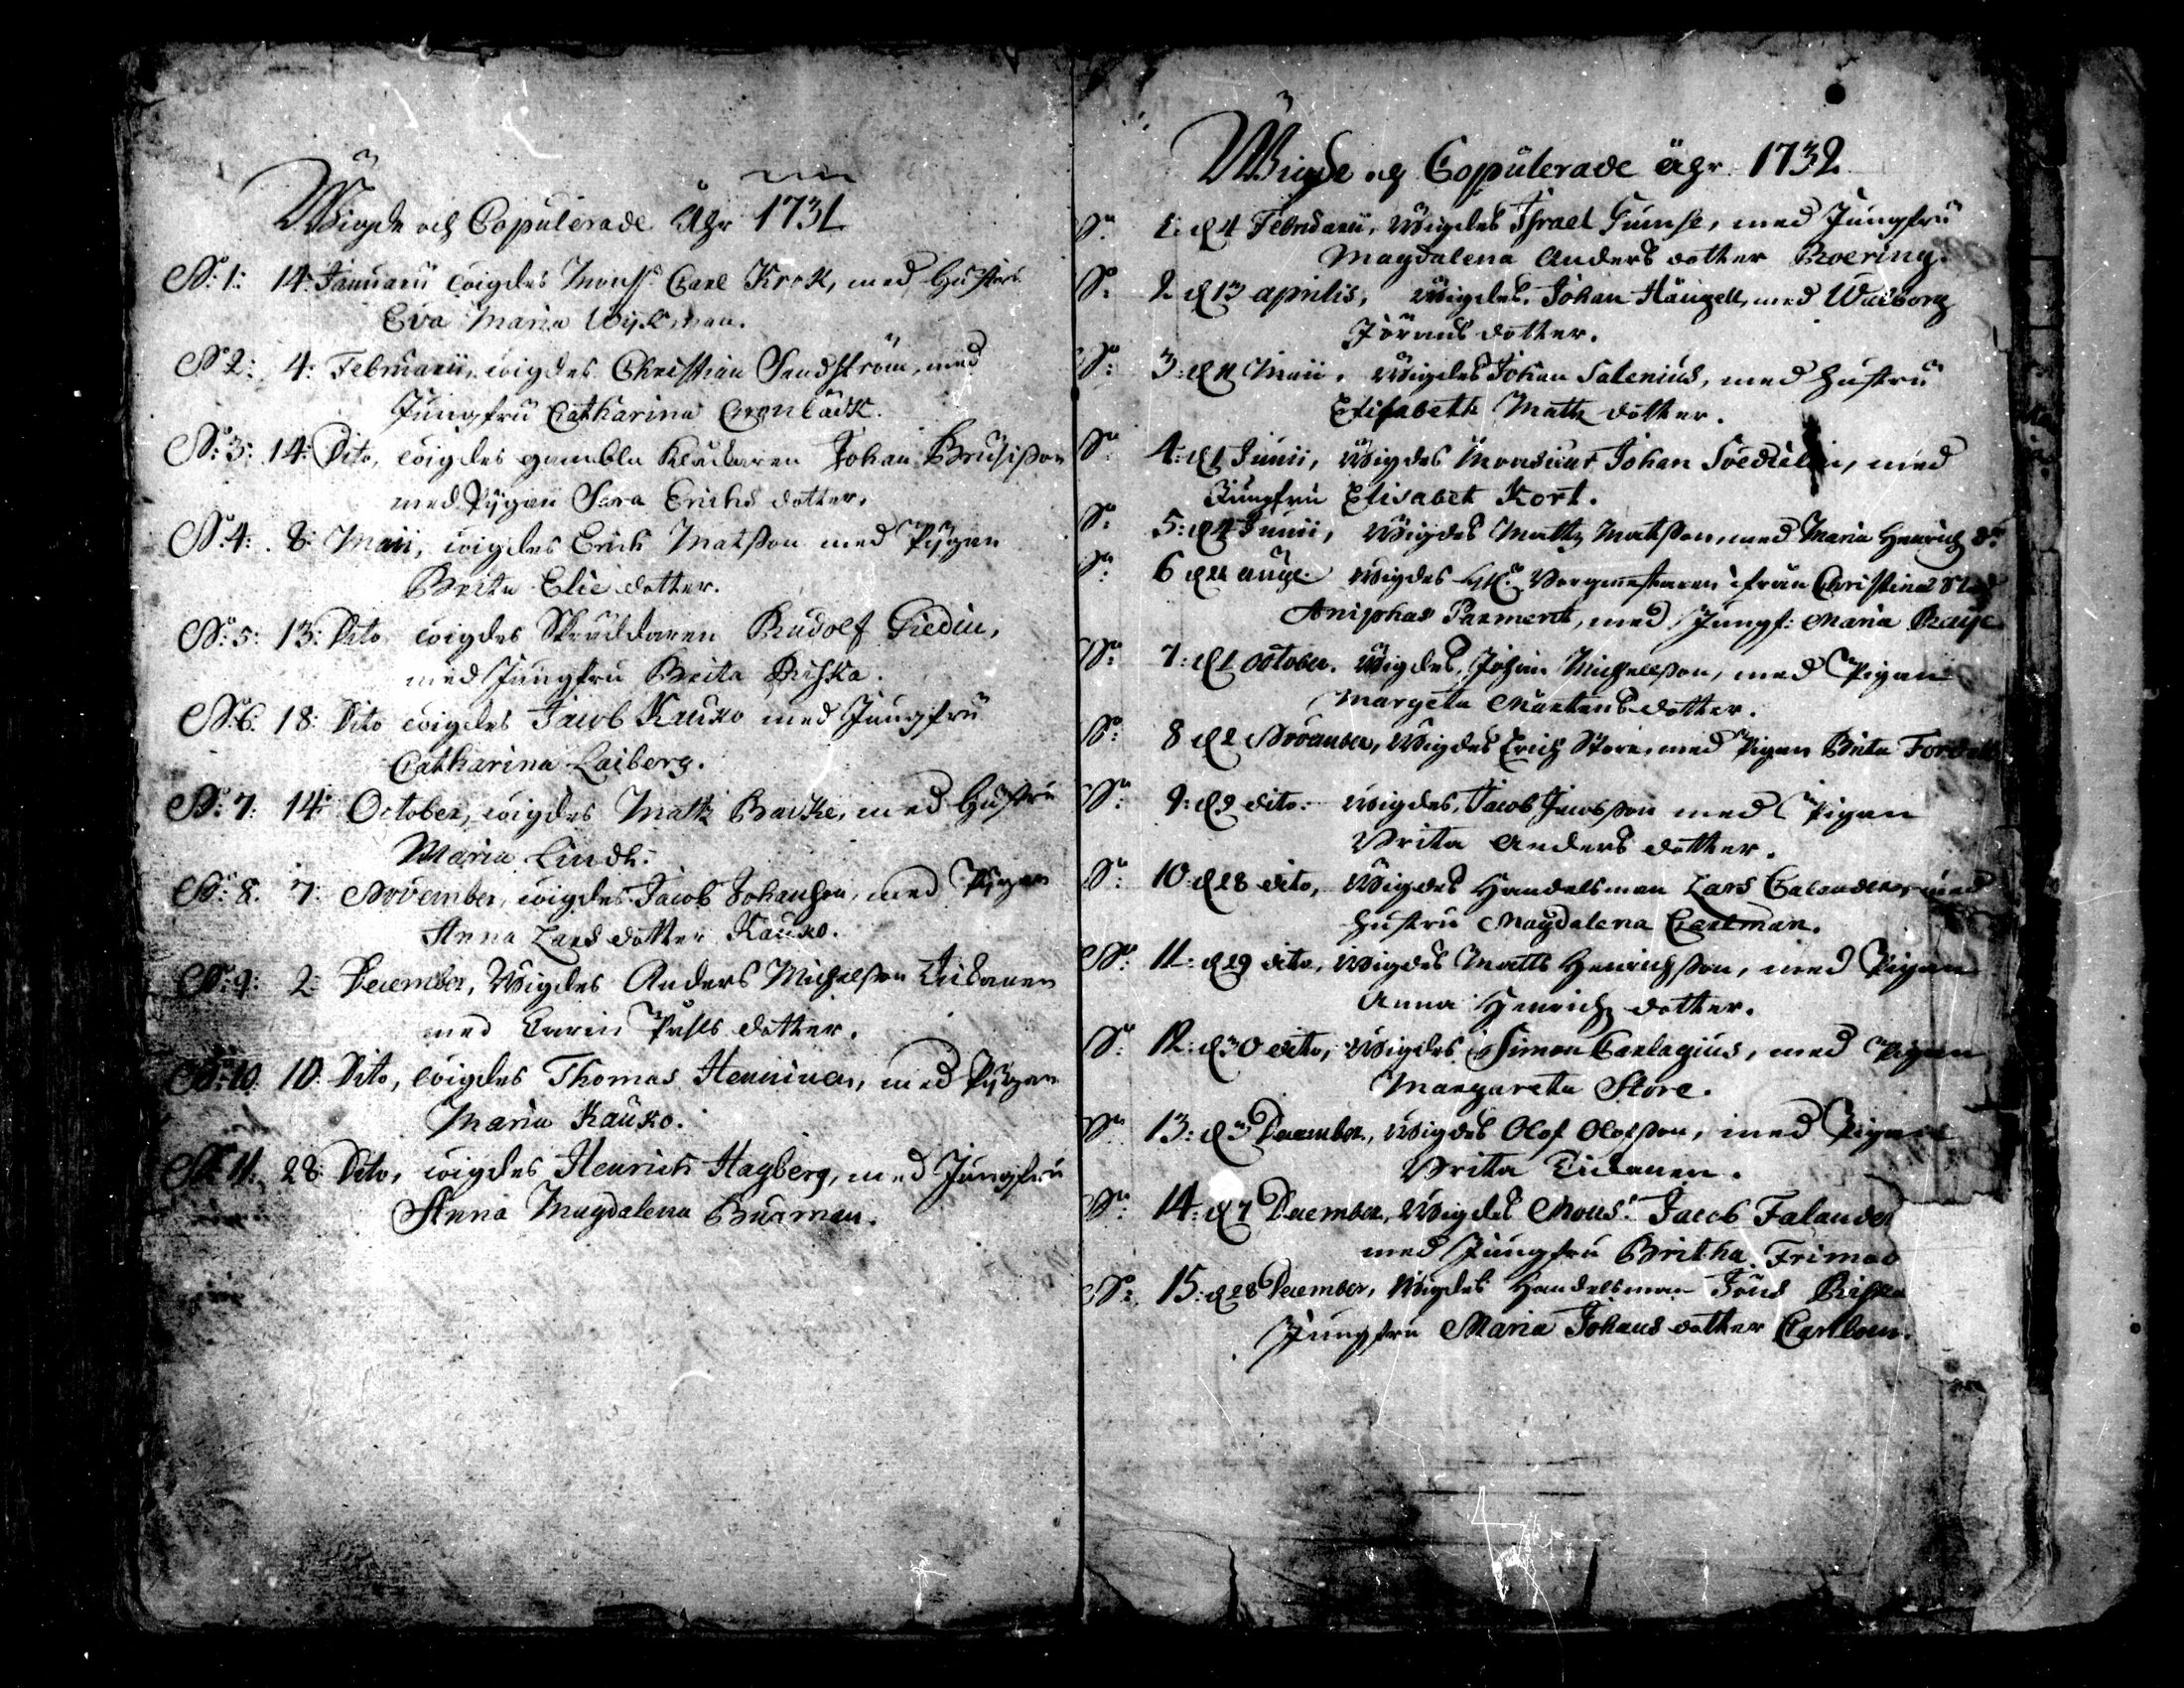 Wigde och Copulerade Åhr 1731
No: 1: 14: Januarii wigdes Mons:r Carl Krok, med Hustru
Eva Maria Wijkman.
No 2: 4: Februarii, wigdes Christian Sandström, med
Jungfru Catharina Gronbäck.
No: 3: 14: Dito, wigdes gambla Klåckaren Johan Brusisson
med Pygan Sara Erichs dotter.
No: 4: 8: Maii, wigdes Erich Matsson med Pÿgan
Brita Elie dotter.
No: 5: 13: Dito wigdes Skräddaren Rudolf Giedin,
med Jungfru Brita Riska.
No: 6. 18: Dito wigdes Jacob Kauko med Jungfru
Catharina Laiberg.
No: 7: 14: October, wigdes Matz Backe, med Hustru
Maria Lindh.
No: 8. 7: November, wigdes Jacob Johansson, med Pygan
Anna Lars dotter Kauko.
No: 9: 2: December, Wigdes Anders Michelsson
med Carin Påls dotter.
No: 10: 10: Dito, wigdes Thomas Henniner, med Pÿgan
Maria Kauko.
No 11: 28: Dito, wigdes Henrich Hagberg, med Jungfru
Anna Magdalena Burman.
Wigde och Copulerade åhr 1732
No 1: d 4 Februarii, Wigdes Israel Gumse, med Jungfru
Magdalena Anders dotter Roering.
No: 2 d 13 aprilis, Wigdes, Johan Hängell, med Walborg
Jörans dotter.
No: 3: d Maii, Wigdes Johan Salenius, med Hustru
Elisabeth Matz dotter.
No 4: d 1 Junii, Wigdes Monsieur Johan med
Jungfru Elisabet Kort.
No: 5: d 4 Junii, Wigdes Mattz Matsson, med Maria Henrichs dr
No: 6 d aug: Wigdes H:r Borgmestaren ifrån Christinæ Stad
Parment, med Jungf: Maria
No: 7: d 1 October. Wigdes, Johan Michelsson, med Pigan
Margeta Mårtens dotter.
No: 8 d 2 November, Wigdes Erich Store, med Pigan Brita
No: 9: d 9 dito: Wigdes, Jacob Jacobsson med Pigan
Brita Anders dotter.
No: 10: d 28 dito, Wigdes Handelsman Lars Calander, med
Hustru Magdalena Carlman.
No: 11: d 29 dito, Wigdes Matts Henrichsson, med Pigan
Anna Henrichz dotter.
No: 12: d 30 dito, Wigdes Simon Carlagius, med Pigan
Margareta Store.
No 13: d 3 December, Wigdes Olof Olofsson, med Pigan
Britta
No: 14: d 7 December, Wigdes Mons:r Jacob Falander
med Jungfru Britha Friman
No: 15: d 28 December, Wigdes Handelsman Jöns Riska
Jungfru Maria Johans dotter